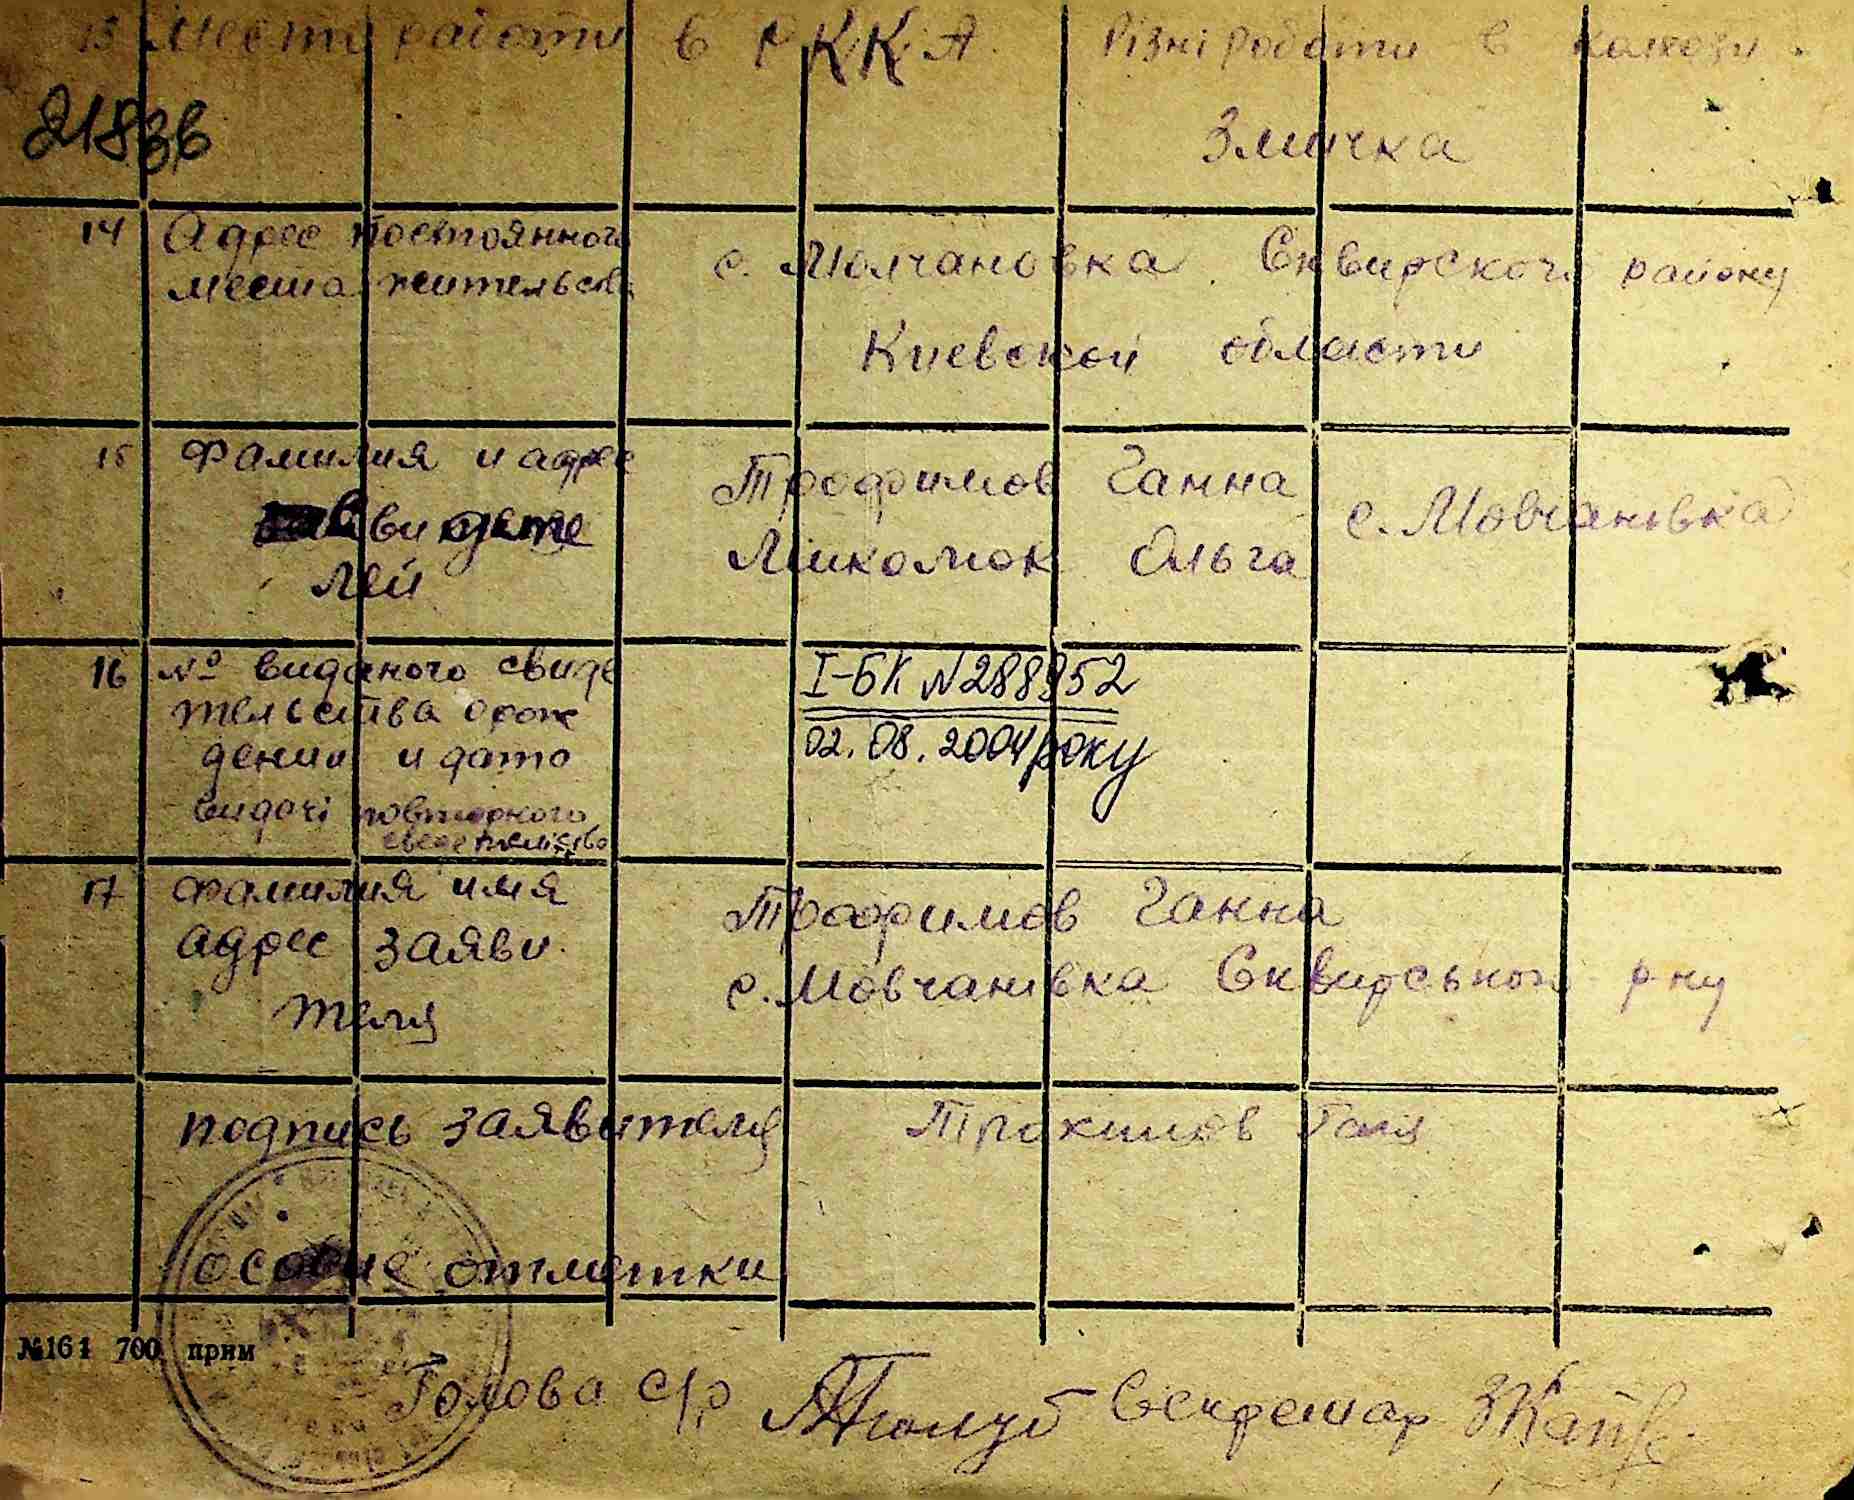 13 Место работи в РККА Різні роботи в колгозі
Змичка
14 Адрес постоянного
места жительства
с. Молчановка Сквирского району
Киевской области
15 Фамилия и адрес
свидете
лей
Трофимов Ганна
Миколюк Ольга
с. Мовчановка
16 № виданого свиде
тельства о рож
дении и дата
видачі повторного
I-БК N288952
02.08.2004 року
17 Фамилия имя
адрес заяви
теля
Трофимов Ганна
с. Мовчанівка Сквирського р-ну
подпись заявителя Трохимов Галя
особие отметки
№161 700 прим
Голова с/р Секретар